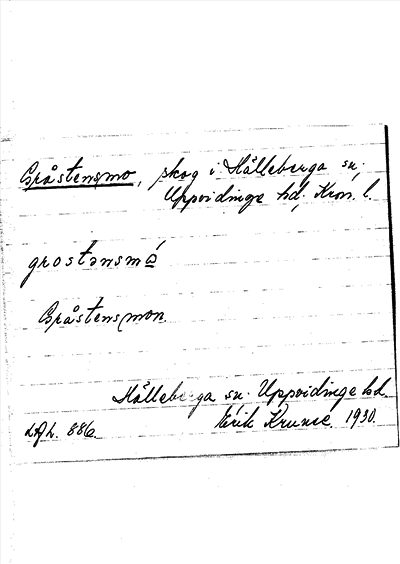 Gråstensmo, skog i Hälleberga sn.
Uppvidinge hd, Kron. l.
grostənsmó
Gråstensmon.
Hälleberga sn. Uppvidinge hd.
Erik Krunic 1930.
886.